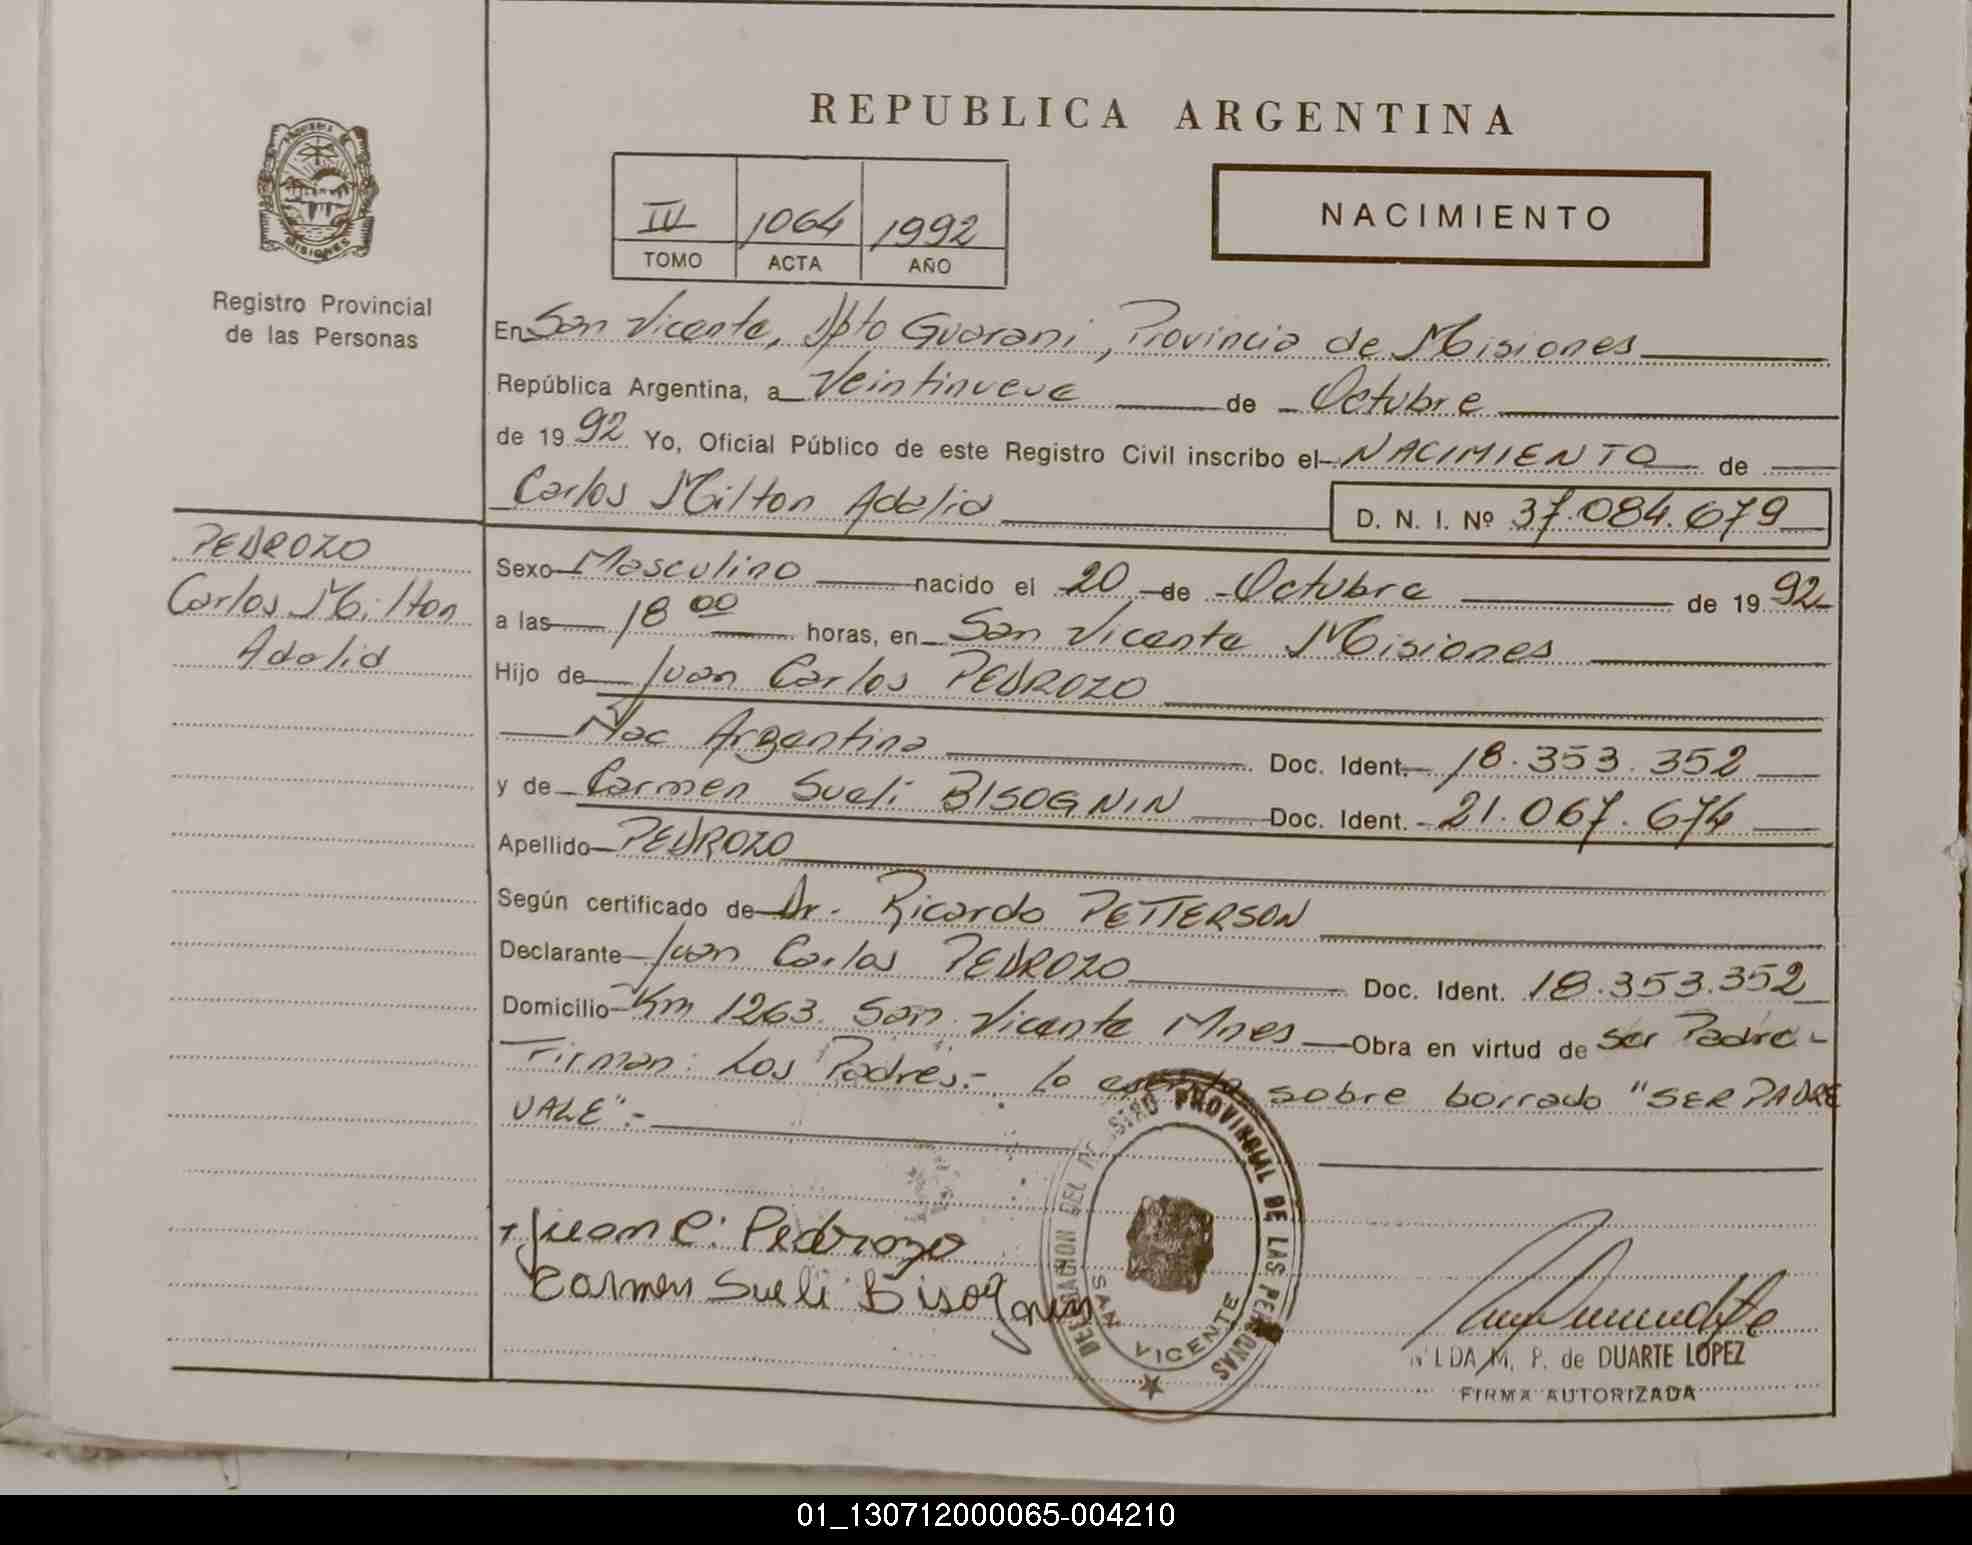 REPUBLICA ARGENTINA
MISIONES
Registro Provincial
de las Personas
IV 1064 1992
TOMO ACTA AÑO
NACIMIENTO
En San Vicente, Dpto Guarani, Provincia de Misiones
República Argentina, a Veintinueve de Octubre
de 1992 Yo, Oficial Público de este Registro Civil inscribo el NACIMIENTO de
Carlos Milton Adalid D. N. I. Nº 37.084.679
PEDROZO
Carlos Milton
Adalid
Sexo Masculino nacido el 20 de Octubre de 1992
a las 18 00 horas, en San Vicente Misiones
Hijo de Juan Carlos PEDROZO
Nac Argentina Doc. Ident. 18.353.352
y de Carmen Sueli BISOGNIN Doc. Ident. 21.067.674
Apellido PEDROZO
Según certificado de Dr. Ricardo PETTERSON
Declarante Juan Carlos PEDROZO Doc. Ident. 18.353.352
Domicilio Km 1263 San Vicente Mnes Obra en virtud de Ser Padre -
Firman: Los Padres.- lo sobre borrado "SER PADRE
VALE".-
Juan C. Pedrozo
Carmen Sueli Bisognin
DELEGACION DEL REGISTRO PROVINCIAL DE LAS PERSONAS
SAN VICENTE
M. P. de DUARTE LOPEZ
FIRMA AUTORIZADA
01_130712000065-004210